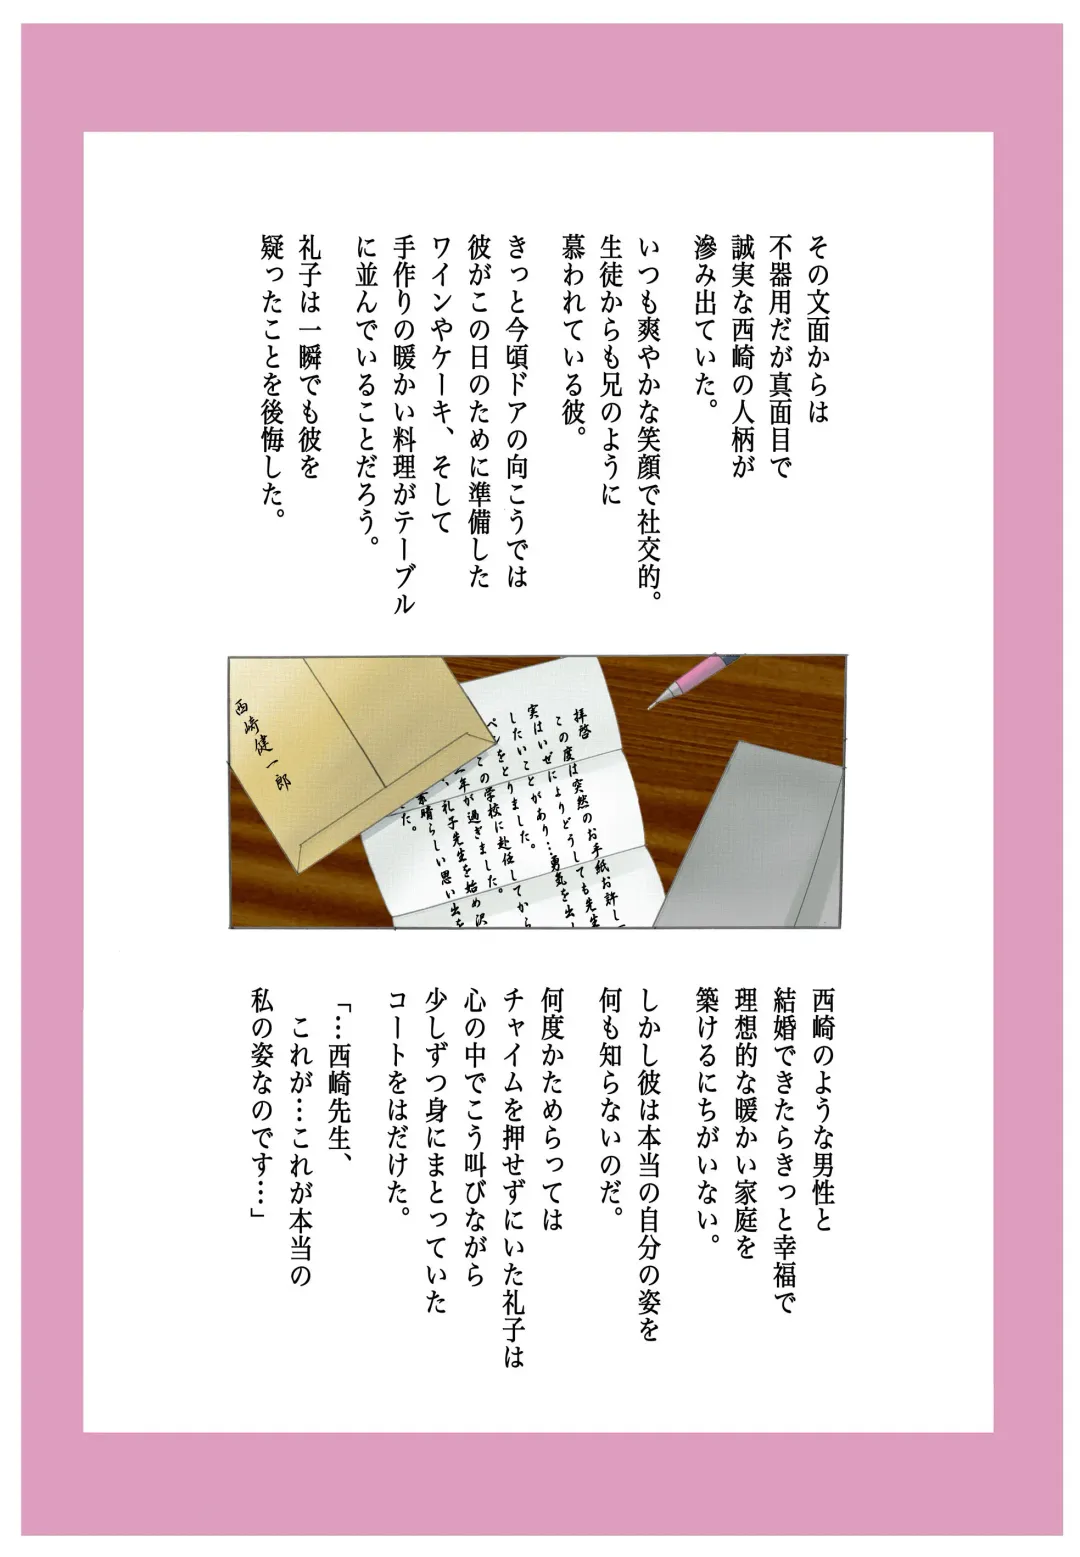 その文面からは
不器用だが真面目で
誠実な西崎の人柄が
滲み出ていた。
いつも爽やかな笑顔で社交的。
生徒からも兄のように
慕われている彼。
きっと今頃ドアの向こうでは
彼がこの日のために準備した
ワインやケーキ、そして
手作りの暖かい料理がテーブル
に並んでいることだろう。
礼子は一瞬でも彼を
疑ったことを後悔した。
西崎健一郎
拝啓
この度は突然のお手紙お許し
実はいぜによりどうしても先生
したいことがあり…勇気を出し
ペンをとりました。
この学校に赴任してから
年が過ぎました。
、礼子先生を始め沢
晴らしい思い出を
た。
西崎のような男性と
結婚できたらきっと幸福で
理想的な暖かい家庭を
築けるにちがいない。
しかし彼は本当の自分の姿を
何も知らないのだ。
何度かためらっては
チャイムを押せずにいた礼子は
心の中でこう叫びながら
少しずつ身にまとっていた
コートをはだけた。
「…西崎先生、
これが…これが本当の
私の姿なのです…」